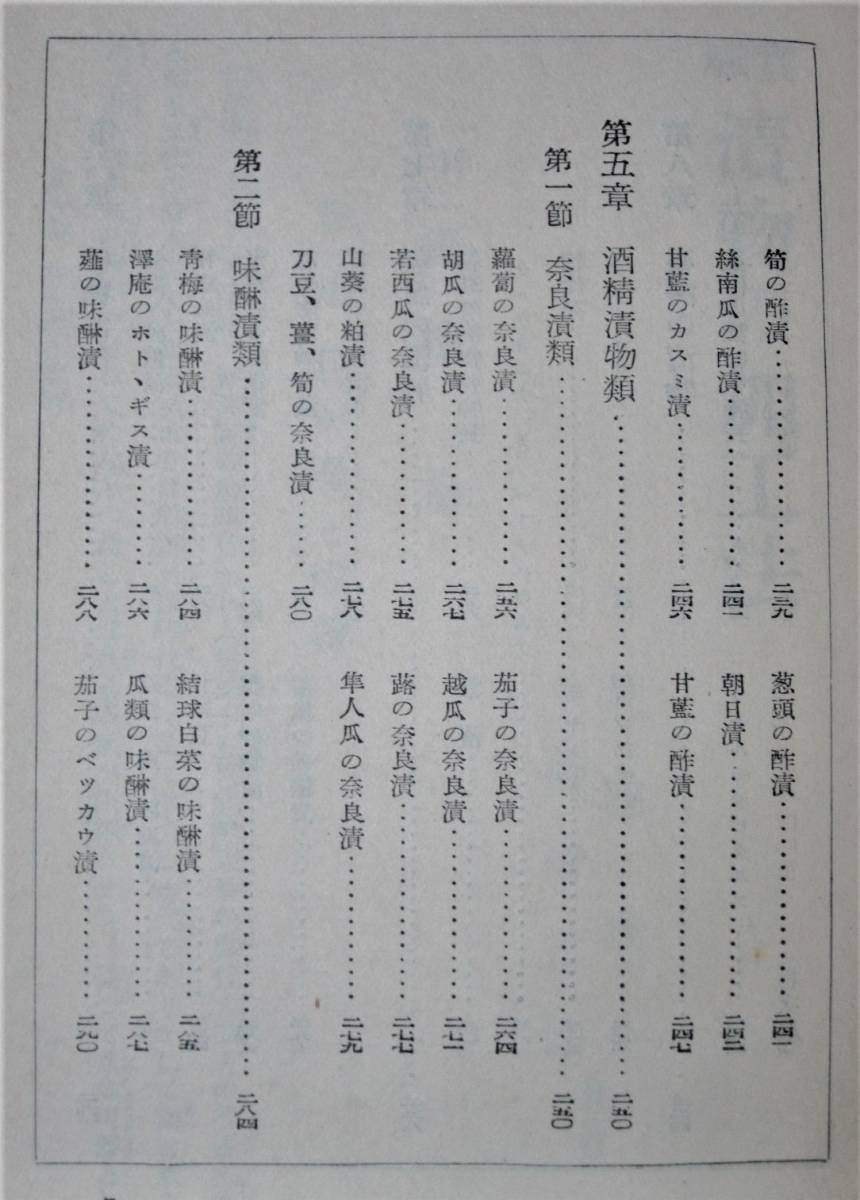 筍の酢漬…………二三九
葱頭の酢漬…………二四一
絲南瓜の酢漬…………二四一
朝日漬…………二四二
甘藍のカスミ漬…………二四六
甘藍の酢漬…………二四七
第五章　酒精漬物類…………二五〇
第一節　奈良漬類…………二五〇
蘿蔔の奈良漬…………二五六
茄子の奈良漬…………二六四
胡瓜の奈良漬…………二六七
越瓜の奈良漬…………二七一
若西瓜の奈良漬…………二七五
蕗の奈良漬…………二七七
山葵の粕漬…………二七八
隼人瓜の奈良漬…………二七九
刀豆、薑、筍の奈良漬……二八〇
第二節　味醂漬類…………二八四
青梅の味醂漬…………二八四
結球白菜の味醂漬…………二八五
澤庵のホトヽギス漬…………二八六
瓜類の味醂漬…………二八七
薤の味醂漬…………二八八
茄子のベツカウ漬…………二九〇